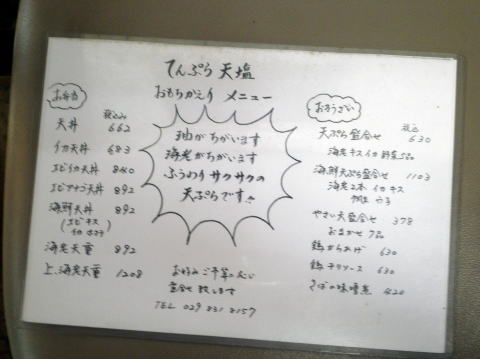 てんぷら 天塩
おもちかえり メニュー
お弁当
税込み
天丼 662
イカ天丼 683
エビイカ天丼 840
エビアナゴ天丼 892
海鮮天丼 892
(エビ キス
イカ ホタテ)
海老天重 892
上、海老天重 1208
油がちがいます
海老がちがいます
ふうわりサクサクの
天ぷらです。
お好み ご予算に応じ
盛合せ 致します
TEL 029 831 8157
おそうざい
税込
天ぷら盛合せ 630
海老 キス イカ 野菜 5品
海鮮天ぷら盛合せ 1103
海老2本 イカ キス
やさい天盛合せ 378
おまかせ 7品
鶏からあげ 630
鶏チリソース 630
さばの味噌煮 420